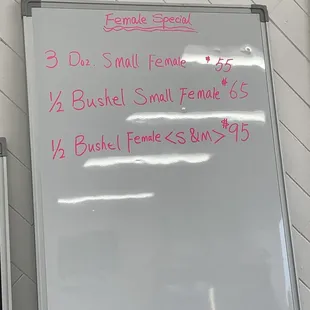 Female Special
3 Doz. Small Female $55
1/2 Bushel Small Female $65
1/2 Bushel Female <S & M> $95